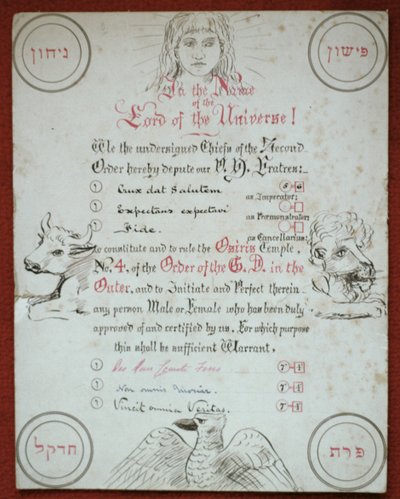 ניחון
פישון
In the Name
of the
Lord of the Universe!
We the undersigned Chiefs of the Second
Order hereby depute our V. H. Fratres:
Crux dat Salutem
5 = 6
as Imperator;
Expectans expectavi
as Praemonstrator;
Fide.
as Cancellarius;
to constitute and to rule the Osiris Temple,
No. 4, of the Order of the G. D. in the
Outer, and to Initiate and Perfect therein
any person Male or Female who has been duly
approved of and certified by us. For which purpose
this shall be sufficient Warrant.
Deo Duce Comite Ferro
7 = 4
Non omnis Moriar.
7 = 4
Vincit omnia Veritas.
7 = 4
חדקל
פרת